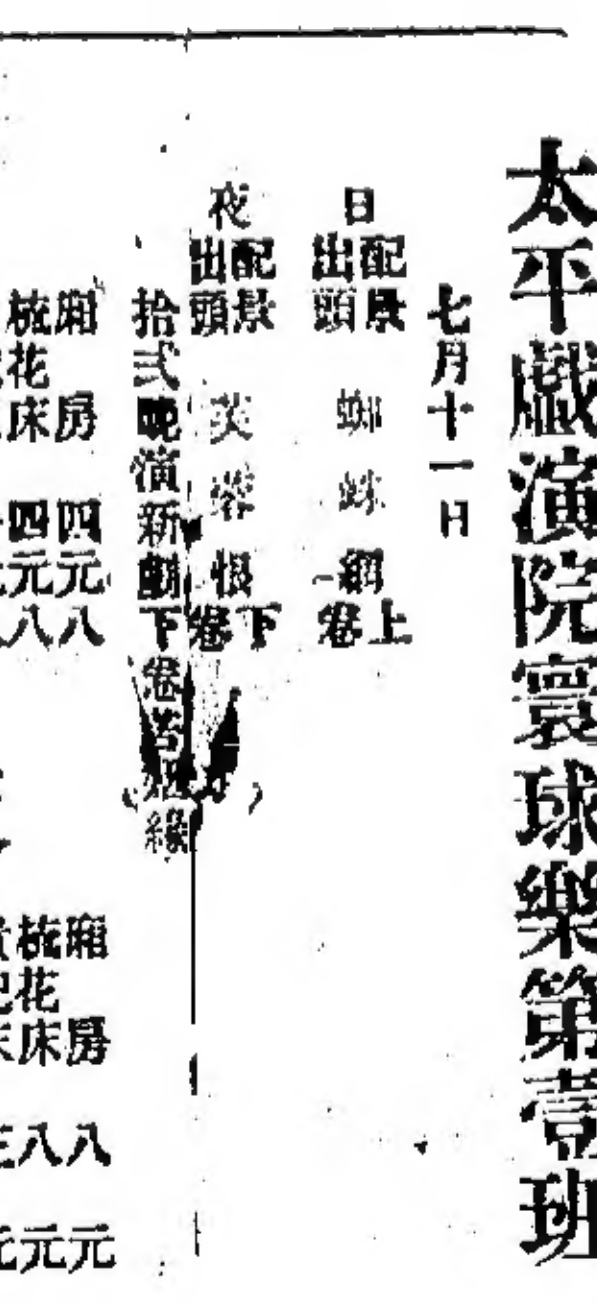 太平戲演院寰球樂第壹班
七月十一日
日 配景 出頭 蜘蛛網 上卷
夜 配景 出頭 芙蓉恨 下卷
拾弍晚演新劇下卷苦姻緣
廂房 四元八
梳花床 四元八
廂房 八元
梳花床 八元